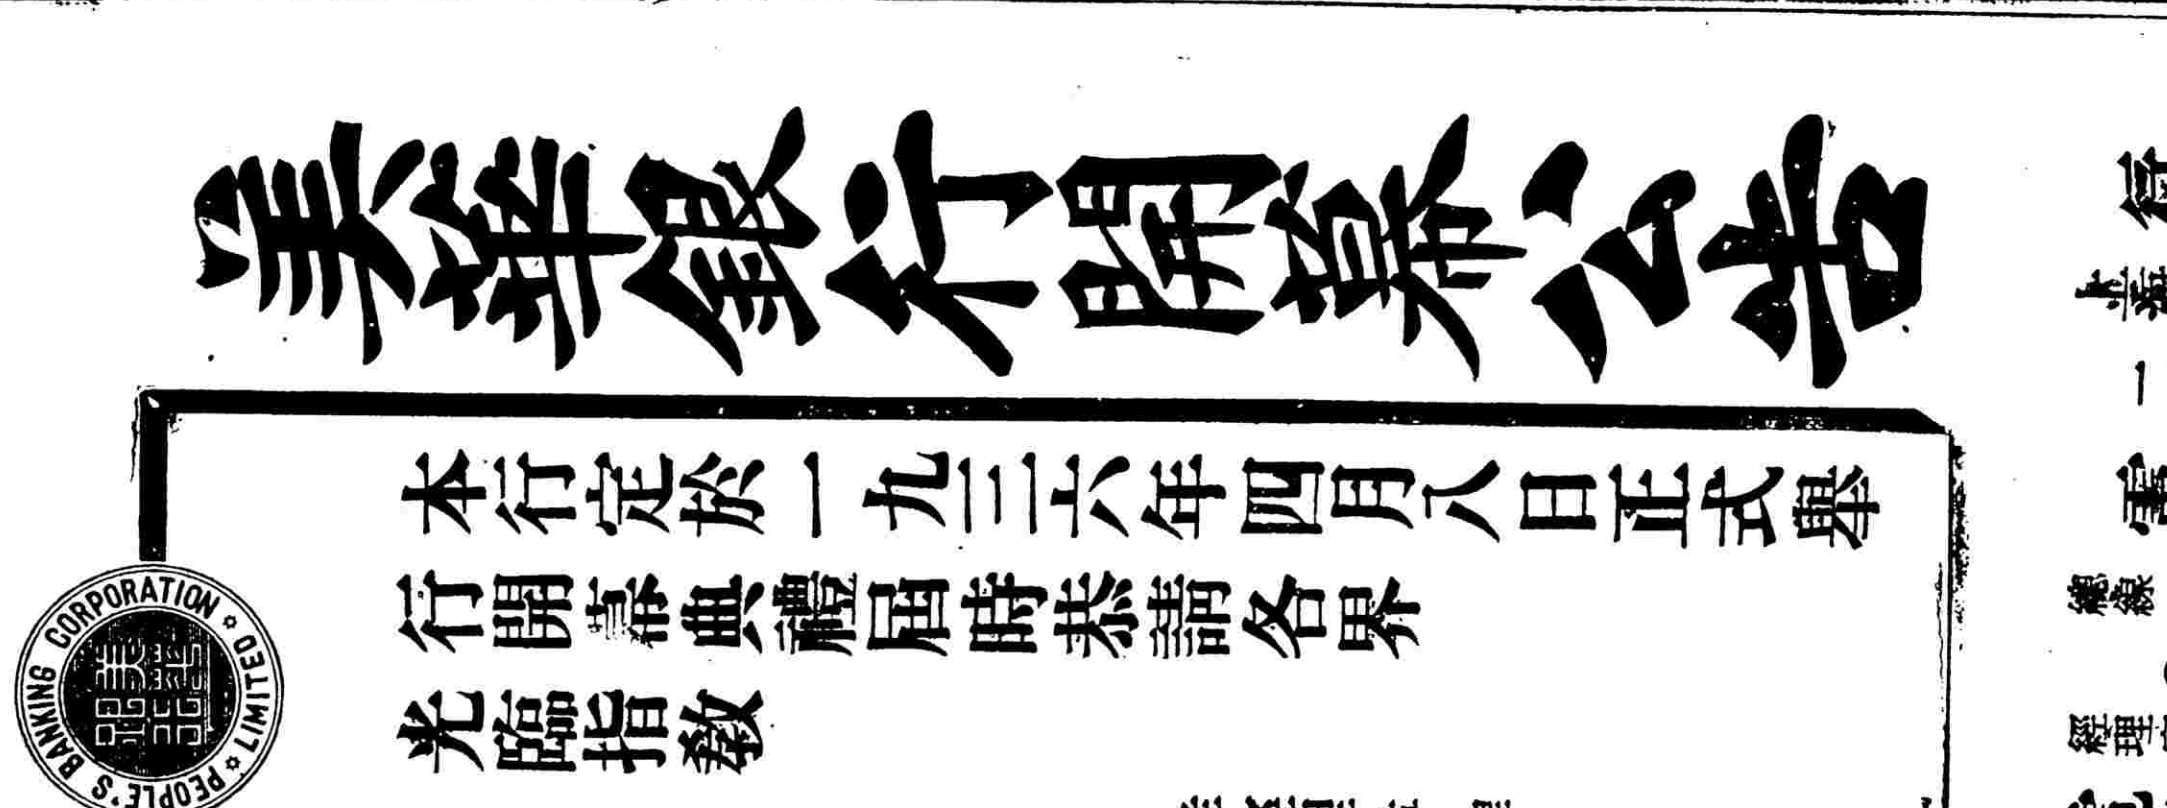 美華銀行開幕公告
本行定於一九三六年四月八日正式舉
行開幕典禮屆時恭請各界
光臨指教
PEOPLE'S BANKING CORPORATION LIMITED
總線
經理